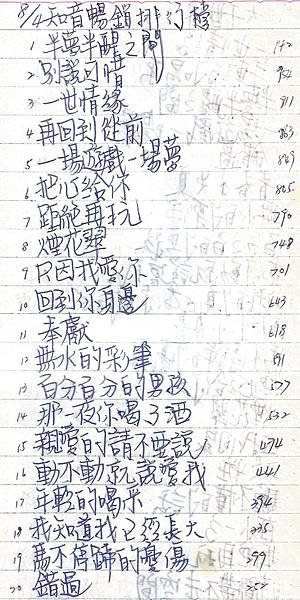 8/4知音暢銷排行榜
1 半夢半醒之間
2 別說可惜 954
3 一世情緣 911
4 再回到從前
5 一場遊戲一場夢 869
6 把心給你 865
7 距絕再玩 790
8 煙花淚 748
9 只因我愛你 701
10 回到你身邊 643
11 奉獻 618
12 無水的彩筆 591
13 百分百分的男孩 577
14 那一夜你喝了酒 532
15 親愛的請不要說 474
16 動不動就說愛我 441
17 年輕的喝采 394
18 我知道我已經長大 335
19 馬不停蹄的憂傷 299
20 錯過 252